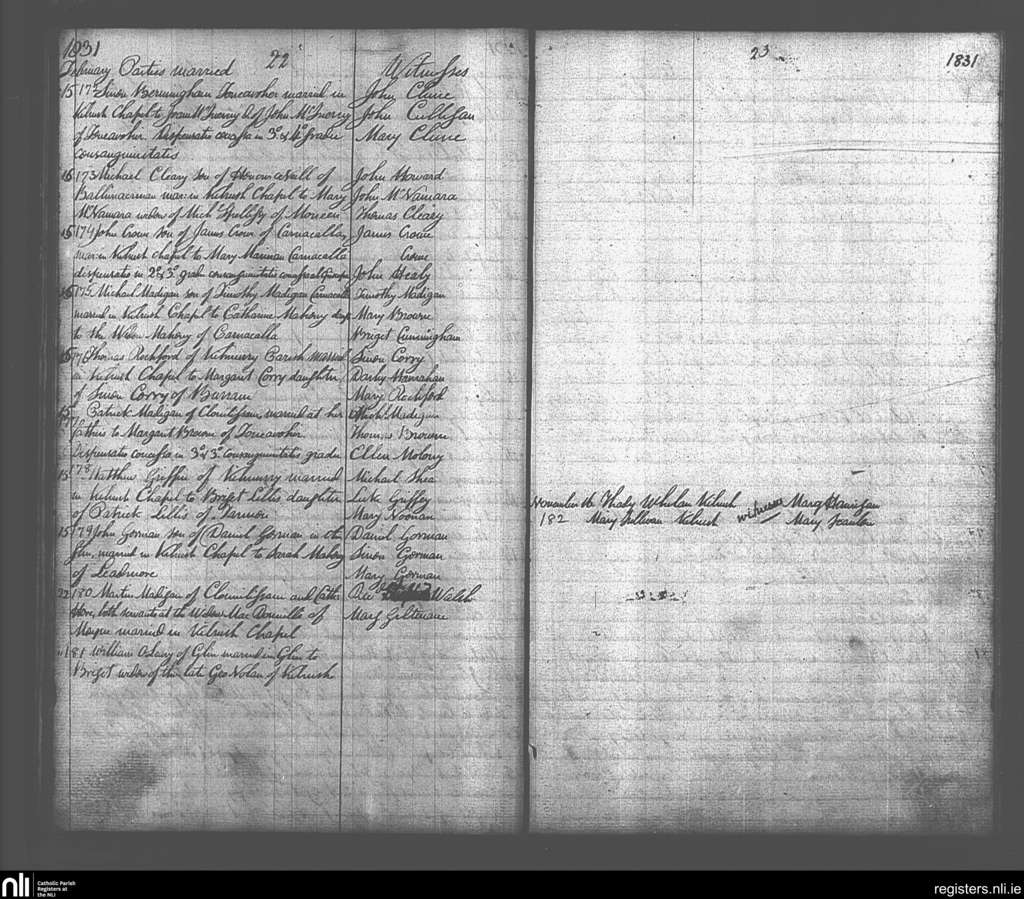 1831
22
February Parties married
Witnesses
15 172 Simon Bermingham Toneavoher married in
John Clune
Kilrush Chapel to Joan McInerny d of John McInerny
John Culligan
of Toneavoher. Dispensatis in 3o & 4o gradu
Mary Clune
consanguinitatis
15 173 Michael Cleary son of Honour of
John Howard
mar: in Kilrush Chapel to Mary
John McNamara
McNamara widow of Michl of Moneen
Thomas Cleary
15 174 John Crowe son of James Crowe of Carnacalla
James Crowe
mar: in Kilrush Chapel to Mary Carnacalla
Crowe
dispensatis in 2o & 3o gradu consanguinitatis
John Healy
15 175 Michael Madigan son of Timothy Madigan Carnacalla
Timothy Madigan
married in Kilrush Chapel to Catharine Mahony
Mary Browne
to the Widow Mahony of Carnacalla
Briget Cunningham
15 176 Thomas Rochford of Kilmurry Parish married
Simon Corry
in Kilrush Chapel to Margaret Corry daughter
Darby Hanrahan
of Simon Corry of Burrane
Mary Rochford
15 177 Patrick Madigan of married at her
Michl Madigan
fathers to Margaret Browne of Toneavoher
Thomas Browne
Dispensatis in 3o & 3o consanguinitatis gradu
Ellen Molony
15 178 Matthew Griffin of Kilmurry married
Michael Shea
in Kilrush Chapel to Briget Lillis daughter
Luke Griffey
of Patrick Lillis of
Mary Noonan
15 179 John Gorman son of Daniel Gorman in the
Daniel Gorman
married in Kilrush Chapel to Sarah Mahony
Simon Gorman
of Leadmore
Mary Gorman
22 180 Martin Madigan of and
Walsh
both servants at the Widow Mac Donnells of
Mary Giltenane
married in Kilrush Chapel
" 181 William of Glin married in Glin to
Briget widow of the late Geo Nolan of Kilrush
23
1831
November 16 Thady Whelan Kilrush
witnesses
Marg Hannigan
182
Mary Sullivan Kilrush
Mary Scanlan
nli
Catholic Parish
Registers at
the NLI
registers.nli.ie